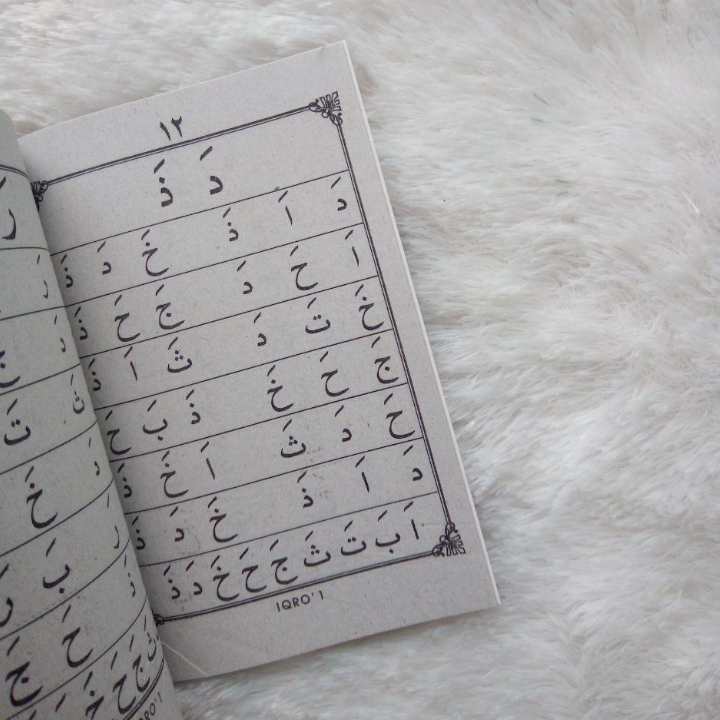 ١٢
دَ ذَ
دَ اَ ذَ خَ دَ ذَ
اَ حَ دَ جَ حَ ذَ
خَ تَ دَ ثَ اَ ذَ
جَ حَ خَ ذَ بَ حَ
حَ دَ ثَ اَ خَ ذَ
دَ اَ ذَ خَ دَ ذَ
اَ بَ تَ ثَ جَ حَ خَ دَ ذَ
IQRO' 1
رَ
رَ
ثَ تَ
خَ
بَ رَ
حَ جَ
جَ حَ خَ